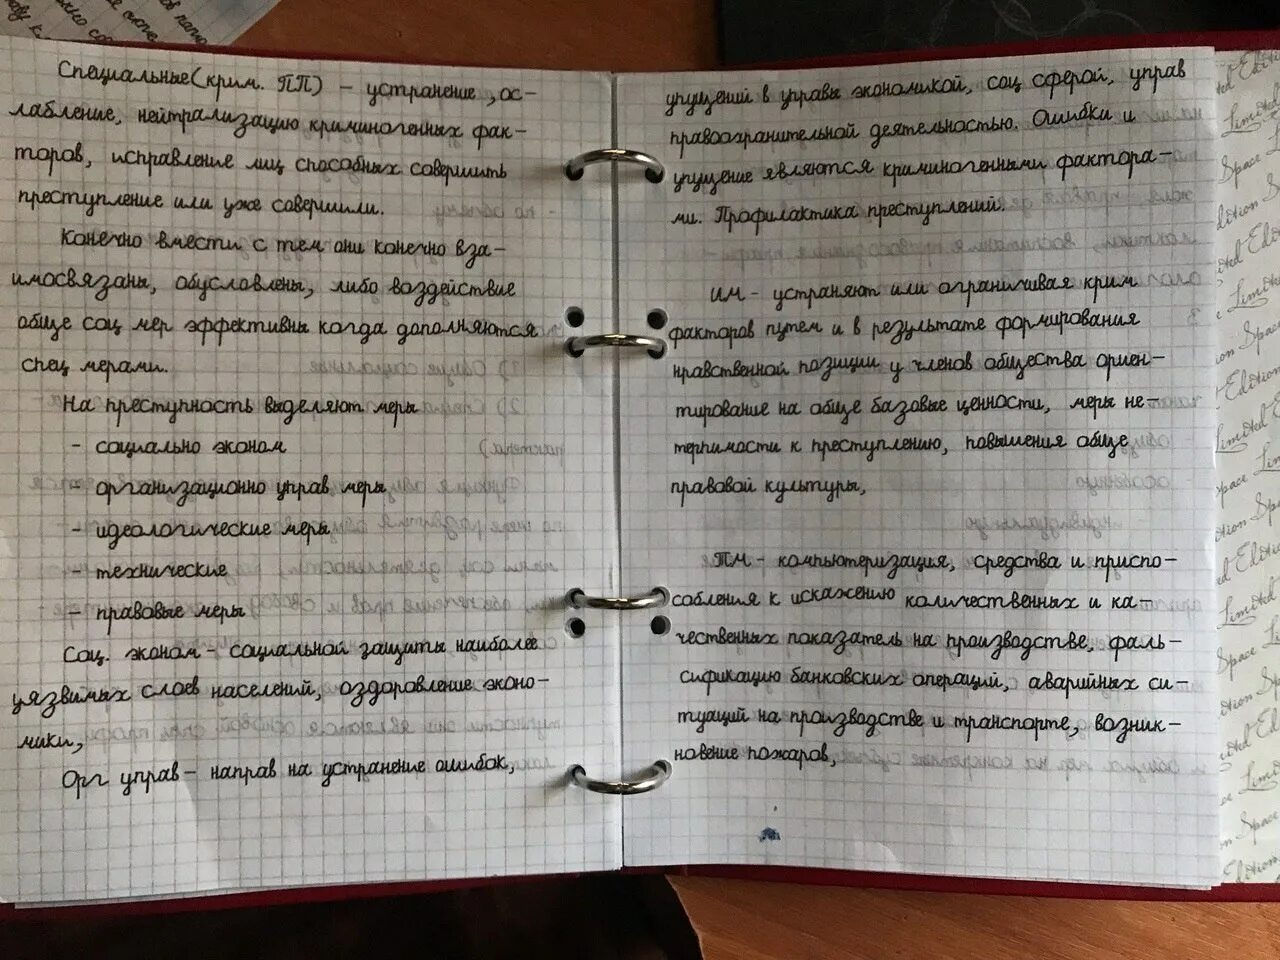 Специальные(крим. ПП) – устранение, ос-
лабление, нейтрализацию криминогенных фак-
торов, исправление лиц способных совершить
преступление или уже совершили.
Конечно вмести с тем они конечно вза-
имосвязаны, обусловлены, либо воздействие
обще соц мер эффективны когда дополняются
спец мерами.
На преступность выделяют меры
- социально эконом
- организационно управ меры
- идеологические меры
- технические
- правовые меры
Соц. эконом – социальной защиты наиболее
уязвимых слоев населений, оздоровление эконо-
мики,
Орг управ – направ на устранение ошибок,
упущений в управы экономикой, соц сферой, управ
правоохранительной деятельностью. Ошибки и
упущение являются криминогенными фактора-
ми. Профилактика преступлений.
ИМ – устраняют или ограничивая крим
факторов путем и в результате формирования
нравственной позиции у членов общества ориен-
тирование на обще базовые ценности, меры не-
терпимости к преступлению, повышения обще
правовой культуры,
ТМ – компьютеризация, средства и приспо-
собления к искажению количественных и ка-
чественных показатель на производстве, фаль-
сификацию банковских операций, аварийных си-
туаций на производстве и транспорте, возник-
новение пожаров,
Limited Edition
Space